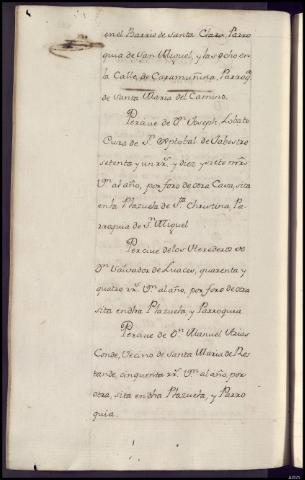 en el Barrio de Santa Clara, Parro
quia de San Miguel, y las ocho en
la Calle de Caramuñina, Parroq.
de Santa Maria del Camino.
Percive de Dn. Joseph Lobato
Cura de Sn. Xptobal de
setenta y un rr. y diez y siete mrs.
Vn. al año, por foro de otra Casa, sita
en la Plazuela de Sta. Christina, Pa-
rroquia de Sn. Miguel
Percive de los Herederos de
Dn. Salvador de Luaces, quarenta y
quatro rr. Vn. al año, por foro de otra
sita en dha Plazuela, y Parroquia
Percive de Dn. Manuel
Conde, Vecino de Santa Maria de
tande, cinquenta rr. Vn. al año, por
otra, sita en dha Plazuela, y Parro
quia.